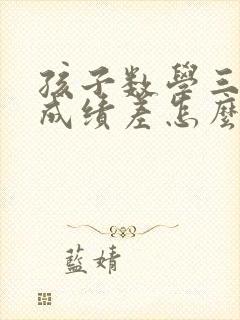 孩子数學三
成绩差怎麼
藍婧